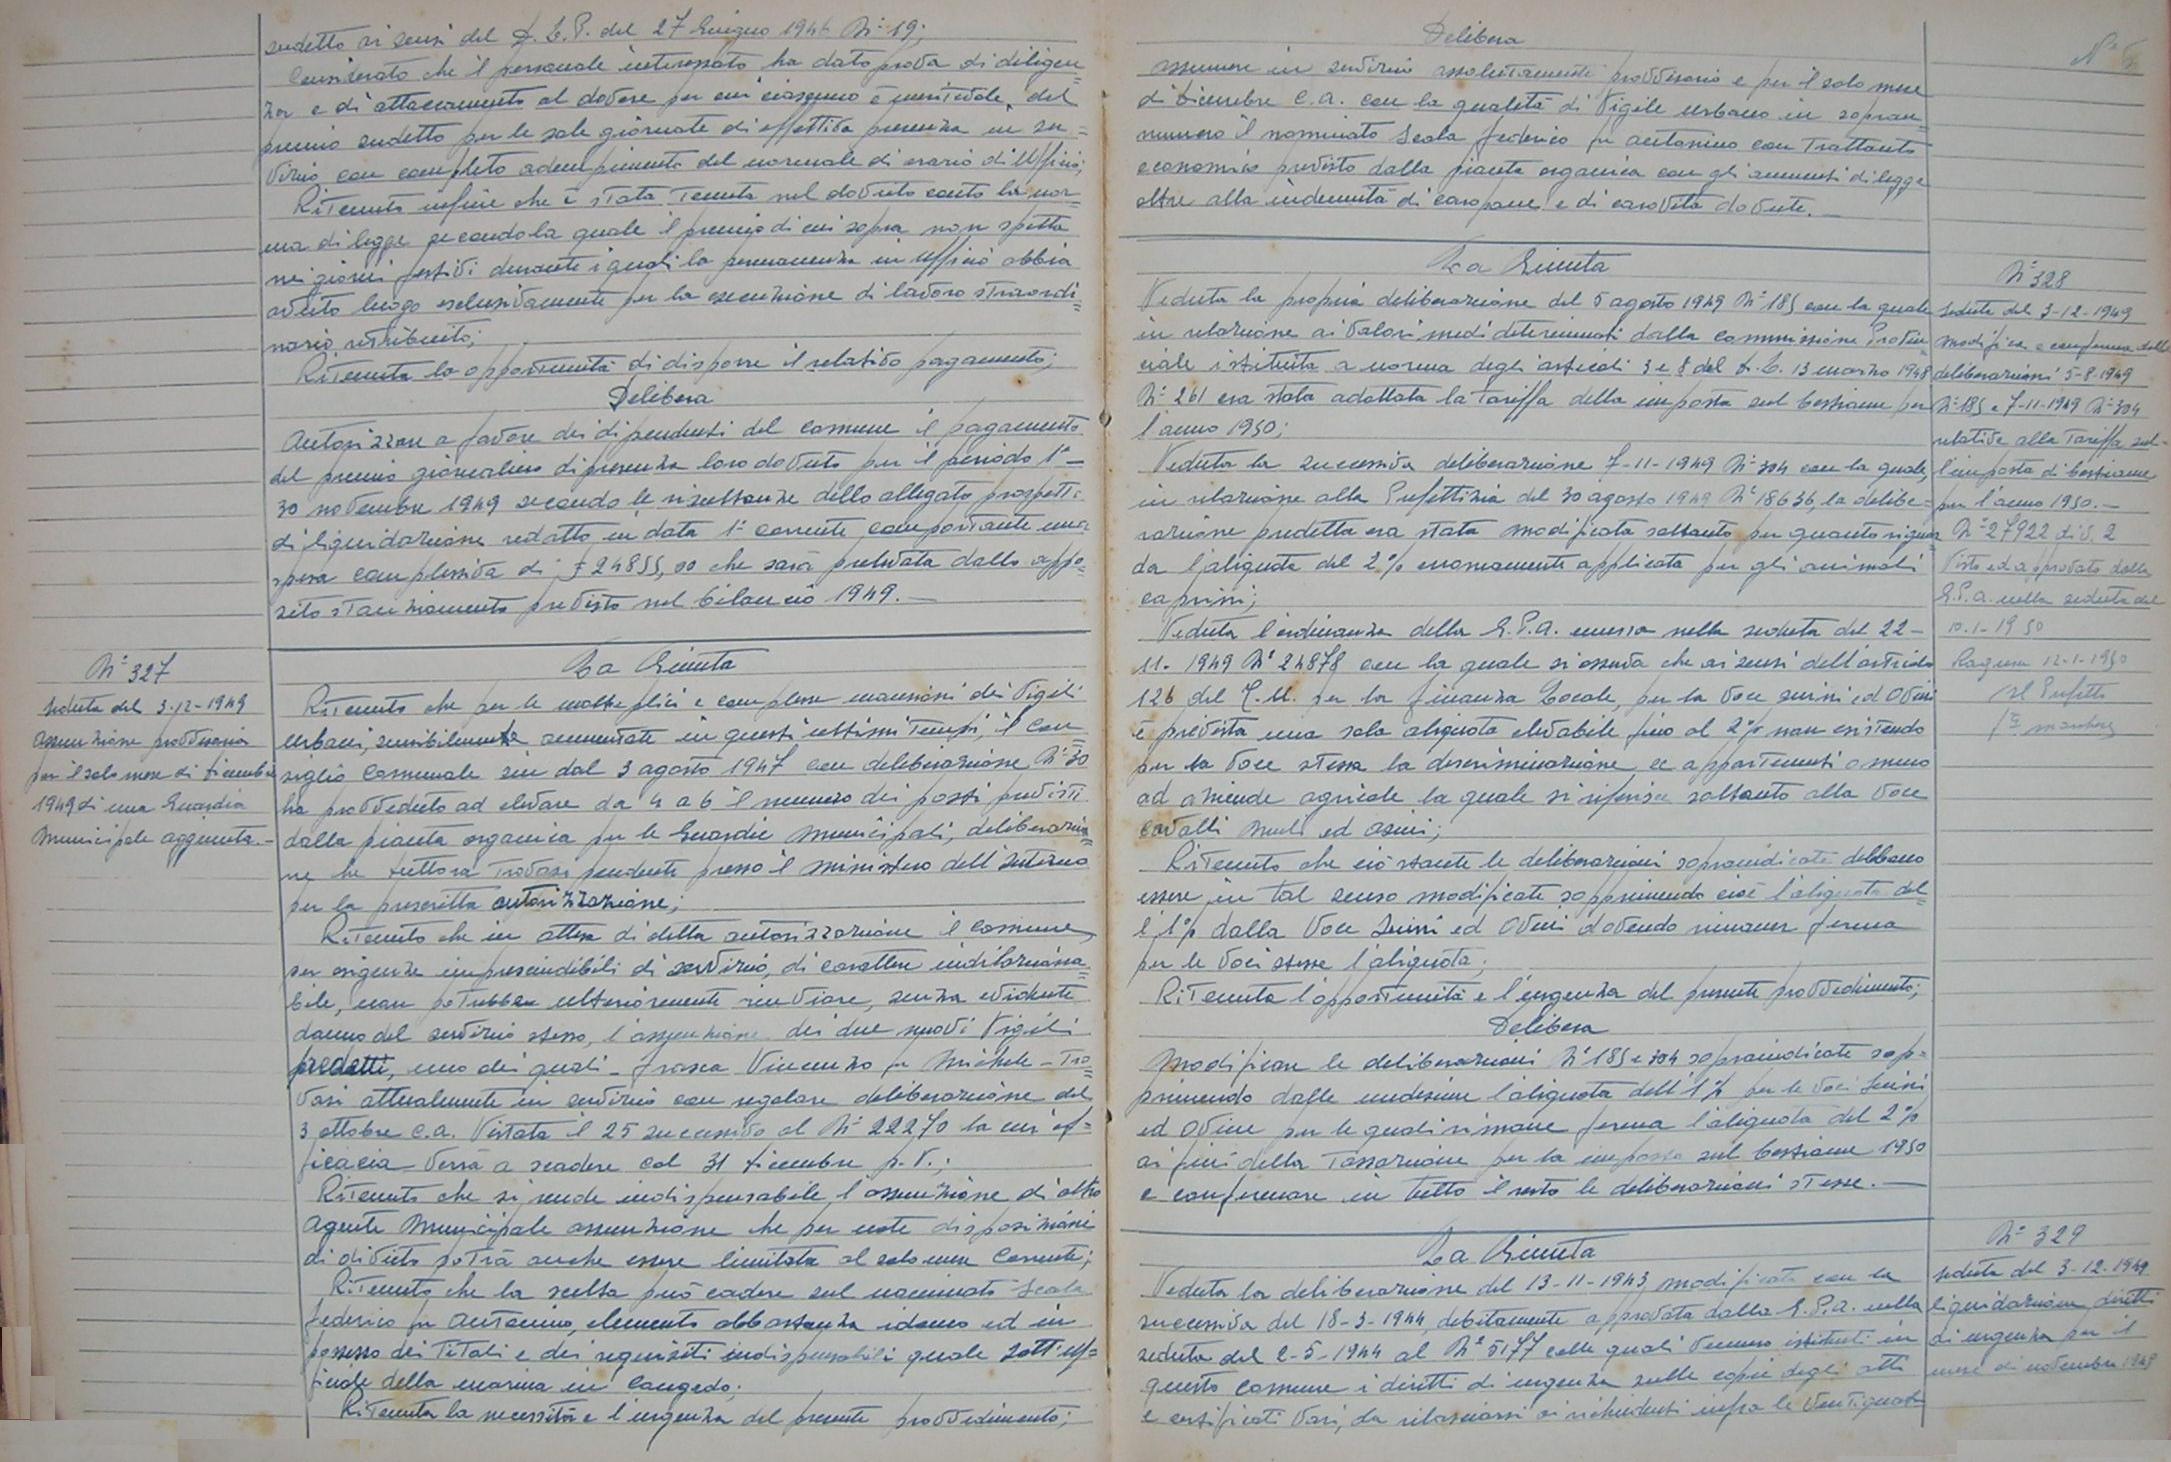 sudetto ai sensi del D. L. P. del 27 Giugno 1946 N° 19;
Considerato che il personale interessato ha dato prova di diligen=
za e di attaccamento al dovere per cui ciascuno è meritevole del
premio sudetto per le sole giornate di effettiva presenza in ser=
vizio con completo adempimento del normale di orario di Ufficio;
Ritenuto infine che è stata tenuta nel dovuto conto la nor=
ma di legge secondo la quale il premio di cui sopra non spetta
nei giorni festivi durante i quali la permanenza in ufficio abbia
avuto luogo esclusivamente per la esecuzione di lavoro straordi=
nario retribuito;
Ritenuta la opportunità di disporre il relativo pagamento;
Delibera
Autorizzare a favore dei dipendenti del comune il pagamento
del premio giornaliero di presenza loro dovuto per il periodo 1° -
30 novembre 1949 secondo le risultanze dello allegato prospetto
di liquidazione redatto in data 1° corrente comportante una
spesa complessiva di £ 24855,00 che sarà prelevata dallo appo=
sito stanziamento previsto nel bilancio 1949. -
N° 327
seduta del 3-12-1949
Assunzione provvisoria
per il solo mese di dicembre
1949 di una Guardia
Municipale aggiunta. -
La Giunta
Ritenuto che per le molteplici e complesse mansioni dei Vigili
Urbani, sensibilmente aumentate in questi ultimi tempi, il Con
siglio Comunale sin dal 3 agosto 1947 con deliberazione N° 30
ha provveduto ad elevare da 4 a 6 il numero dei posti previsti
dalla pianta organica per le Guardie Municipali, deliberazio=
ne che tuttora trovasi pendente presso il Ministero dell'Interno
per la prescritta autorizzazione;
Ritenuto che in attesa di detta autorizzazione il comune,
per esigenze imprescindibili di servizio, di carattere indilaziona=
bile, non potrebbe ulteriormente rinviare, senza evidente
danno del servizio stesso, l'assunzione dei due nuovi Vigili
predetti, uno dei quali - Frasca Vincenzo fu Michele - tro=
vasi attualmente in servizio con regolare deliberazione del
3 ottobre c.a. vistata il 25 successivo al N° 22270 la cui ef=
ficacia verrà a scadere col 31 dicembre p.v.;
Ritenuto che si rende indispensabile l'assunzione di altro
Agente Municipale assunzione che per note disposizioni
di divieto potrà anche essere limitata al solo mese corrente;
Ritenuto che la scelta può cadere sul nominato Scala
Federico fu Antonino, elemento abbastanza idoneo ed in
possesso dei titoli e dei requisiti indispensabili quale sott'uf=
ficiale della marina in congedo;
Ritenuta la necessità e l'urgenza del presente provvedimento;
Delibera
assumere in servizio assolutamente provvisorio e per il solo mese
di dicembre c.a. con la qualità di Vigile urbano in sopran=
numero il nominato Scala Federico fu Antonino con trattamento
economico previsto dalla pianta organica con gli aumenti di legge
oltre alla indennità di caropane e di carovita dovute. -
La Giunta
Veduta la propria deliberazione del 5 agosto 1949 N° 185 con la quale
in relazione ai valori medi determinati dalla commissione Provin
ciale istituita a norma degli articoli 3 e 8 del D.L. 13 marzo 1948
N° 261 era stata adottata la tariffa della imposta sul bestiame per
l'anno 1950;
Veduta la successiva deliberazione 7-11-1949 N° 304 con la quale,
in relazione alla Prefettizia del 30 agosto 1949 N° 18636, la delibe=
razione predetta era stata modificata soltanto per quanto riguar
da l'aliquota del 2% erroneamente applicata per gli animali
caprini;
Veduta l'ordinanza della G.P.A. emessa nella seduta del 22-
11-1949 N° 24878 con la quale si osserva che ai sensi dell'articolo
126 del T.U. per la finanza Locale, per la voce suini ed ovini
è prevista una sola aliquota elevabile fino al 2% non esistendo
per la voce stessa la discriminazione se appartenenti o meno
ad aziende agricole la quale si riferisce soltanto alla voce
cavalli muli ed asini;
Ritenuto che ciò stante le deliberazioni sopraindicate debbano
essere in tal senso modificate sopprimendo cioè l'aliquota del=
l'1% dalla voce Suini ed Ovini dovendo rimaner ferma
per le voci stesse l'aliquota;
Ritenuta l'opportunità e l'urgenza del presente provvedimento;
Delibera
Modificare le deliberazioni N° 185 e 304 sopraindicate sop=
primendo dalle medesime l'aliquota dell'1% per le voci Suini
ed Ovine per le quali rimane ferma l'aliquota del 2%
ai fini della tassazione per la imposta sul bestiame 1950
e confermare in tutto il resto le deliberazioni stesse. -
N° 328
seduta del 3-12-1949
Modifica e conferma delle
deliberazioni 5-8-1949
N° 185 e 7-11-1949 N° 304
relative alla tariffa sul-
l'imposta di bestiame
per l'anno 1950. -
N° 27922 div. 2
Visto ed approvato dalla
G.P.A. nella seduta del
10-1-1950
Ragusa 12-1-1950
Il Prefetto
La Giunta
Veduta la deliberazione del 13-11-1943 modificata con la
successiva del 18-3-1944, debitamente approvata dalla G.P.A. nella
seduta del 2-5-1944 al N° 5177 colle quali vennero istituiti in
questo comune i diritti di urgenza sulle copie degli atti
e certificati vari, da rilasciarsi ai richiedenti infra le ventiquattro
N° 329
seduta del 3-12-1949
liquidazione diritti
di urgenza per il
mese di novembre 1949